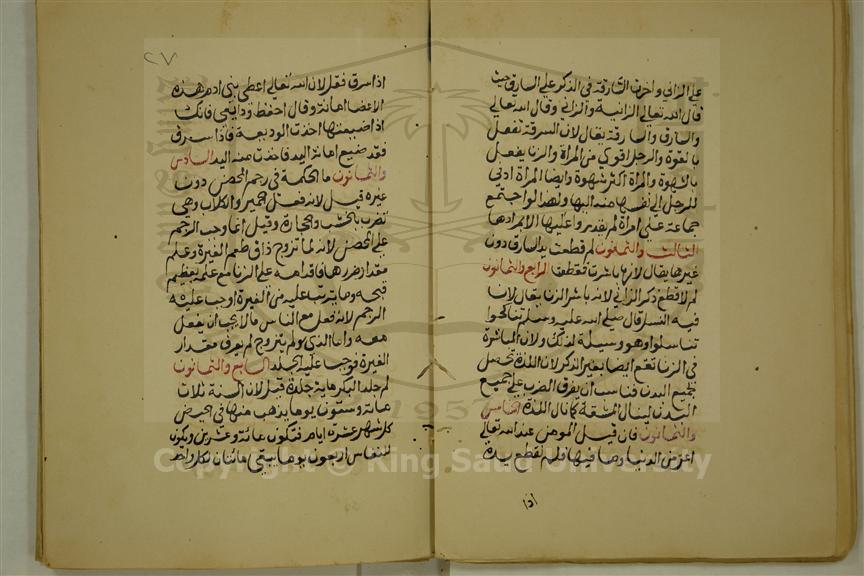 على الزاني واخرت السارقة في الذكر على السارق حيث
قال الله تعالى الزانية والزاني وقال الله تعالى
والسارق والسارقة يقال لان السرقة تفعل
بالقوة والرجل اقوى من المراة والزنا يفعل
بالشهوة والمراة اكثر شهوة وايضا المراة ادنى
للرجل الى نفسها منه اليها ولهذا لو اجتمع
جماعة على امراة لم يقدروا عليها الا بمرادها
الثالث والثمانون لم قطعت يد السارق دون
غيرها يقال لانها باشرت فقطعت الرابع والثمانون
لم لا قطع ذكر الزاني لانه باشر الزنا يقال لان
فيه النسل قال صلى الله عليه وسلم تناكحوا
تناسلوا وهو وسيلة لذلك ولان المباشرة
في الزنا تقع ايضا بغير الذكر لان اللذة تحصل
لجميع البدن فناسب ان يفرق الضرب على جميع
البدن لينال المشقة كما نال اللذة الخامس
والثمانون فان قيل المومن عند الله تعالى
اعز من الدنيا وما فيها فلم تقطع يده
اذا
٢٧
اذا سرق فقل لان الله تعالى اعطى بني ادم هذه
الاعضا امانة وقال احفظ ودايعي فانك
اذا ضيعتها اخذت الوديعة فاذا سرق
فقد ضيع امانة اليد فاخذت منه اليد السادس
والثمانون ما الحكمة في رجم المحصن دون
غيره قيل لانه فعل الحمير والكلاب وهي
تضرب بالخشب والحجارة وقيل انما وجب الرجم
على المحصن لانه لما تزوج ذاق طعم الغيرة وعلم
مقدار ضررها فاقدامه على الزنا مع علمه بعظيم
قبحه وما يترتب عليه من الغيرة اوجب عليه
الرجم لانه فعل مع الناس ما لا يحب ان يفعل
معه واما الذي لم يتزوج لم يعرف مقدار
الغيرة فوجب عليه الجلد السابع والثمانون
لم جلد البكر ماية جلدة قيل لان السنة ثلاث
مائة وستون يوما يذهب منها في الحيض
كل شهر عشرة ايام فتكون مائة وعشرين ويكون
للنفاس اربعون يوما يبقى مائتان لكل واحد
Copyright © King Saud University
1957